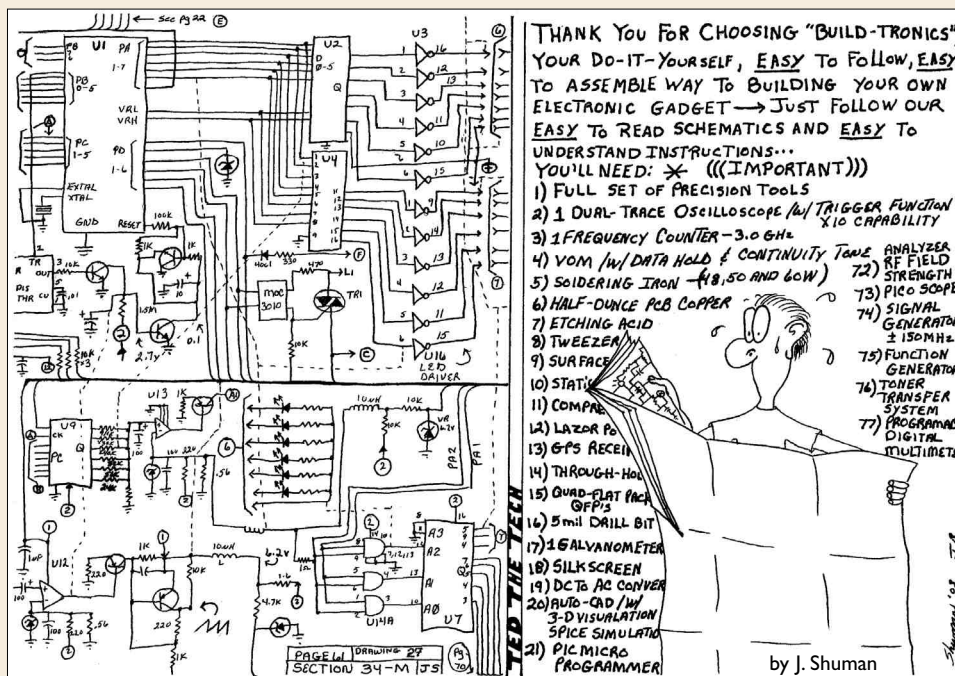 See Pg 22 E
U1
PB
7
PA
1-7
PB
0-5
VRL
VRH
PC
1-5
PD
1-6
EXTAL
XTAL
GND
RESET
100K
1K
1K
10
TR
OUT
3
10K
DIS
THR
CU
5
.01
1.5M
2
2.7V
0.1
10K
x3
U2
D
0-5
Q
U4
1
2
3
4
5
6
7
8
9
11
12
13
14
15
16
4001
330
F
470
L1
MOC
3010
TR1
10K
C
U3
1 16
2 12
3 13
4 11
5 10
6 15
9
12
14
13
12
11
15
U16
LED
DRIVER
6
7
U9
CK
PC
Q
2
U13
1K
A1
100
10K
220
.56
2
6
10uH
10K
10K
VR
6.2V
2
PA2
PA1
1
1uF
U12
100
220
100
220
.56
2
1K
1
10K
220
1K
10uH
L
6.2V
1.6
4.7K
2
1Ω
2
14
7,12,13
13
10
U14A
A3
A2
A1
A0
U7
2
16
Q
7
PAGE 61 DRAWING 27
SECTION 34-M JS
Pg.
70
THANK YOU FOR CHOOSING "BUILD-TRONICS",
YOUR DO-IT-YOURSELF, EASY TO FOLLOW, EASY
TO ASSEMBLE WAY TO BUILDING YOUR OWN
ELECTRONIC GADGET → JUST FOLLOW OUR
EASY TO READ SCHEMATICS AND EASY TO
UNDERSTAND INSTRUCTIONS...
YOU'LL NEED: * (((IMPORTANT)))
1) FULL SET OF PRECISION TOOLS
2) 1 DUAL-TRACE OSCILLOSCOPE /W/ TRIGGER FUNCTION
X10 CAPABILITY
3) 1 FREQUENCY COUNTER - 3.0 GHz
4) VOM /W/ DATA HOLD & CONTINUITY TONE
5) SOLDERING IRON (18, 50 AND 60W)
6) HALF-OUNCE PCB COPPER
7) ETCHING ACID
8) TWEEZER
9) SURFACE
10) STATIC
11) COMPRE
12) LAZOR PO
13) GPS RECEI
14) THROUGH-HOL
15) QUAD-FLAT PACK
QFP'S
16) 5mil DRILL BIT
17) 1 GALVANOMETER
18) SILKSCREEN
19) DC TO AC CONVER
20) AUTO-CAD /W/
3-D VISUALATION
SPICE SIMULATIO
21) PIC MICRO
PROGRAMMER
ANALYZER
72) RF FIELD
STRENGTH
73) PICO SCOPE
74) SIGNAL
GENERATOR
± 150MHz
75) FUNCTION
GENERATOR
76) TONER
TRANSFER
SYSTEM
77) PROGRAMAC
DIGITAL
MULTIMETE
TED THE TECH
by J. Shuman
Shuman '03